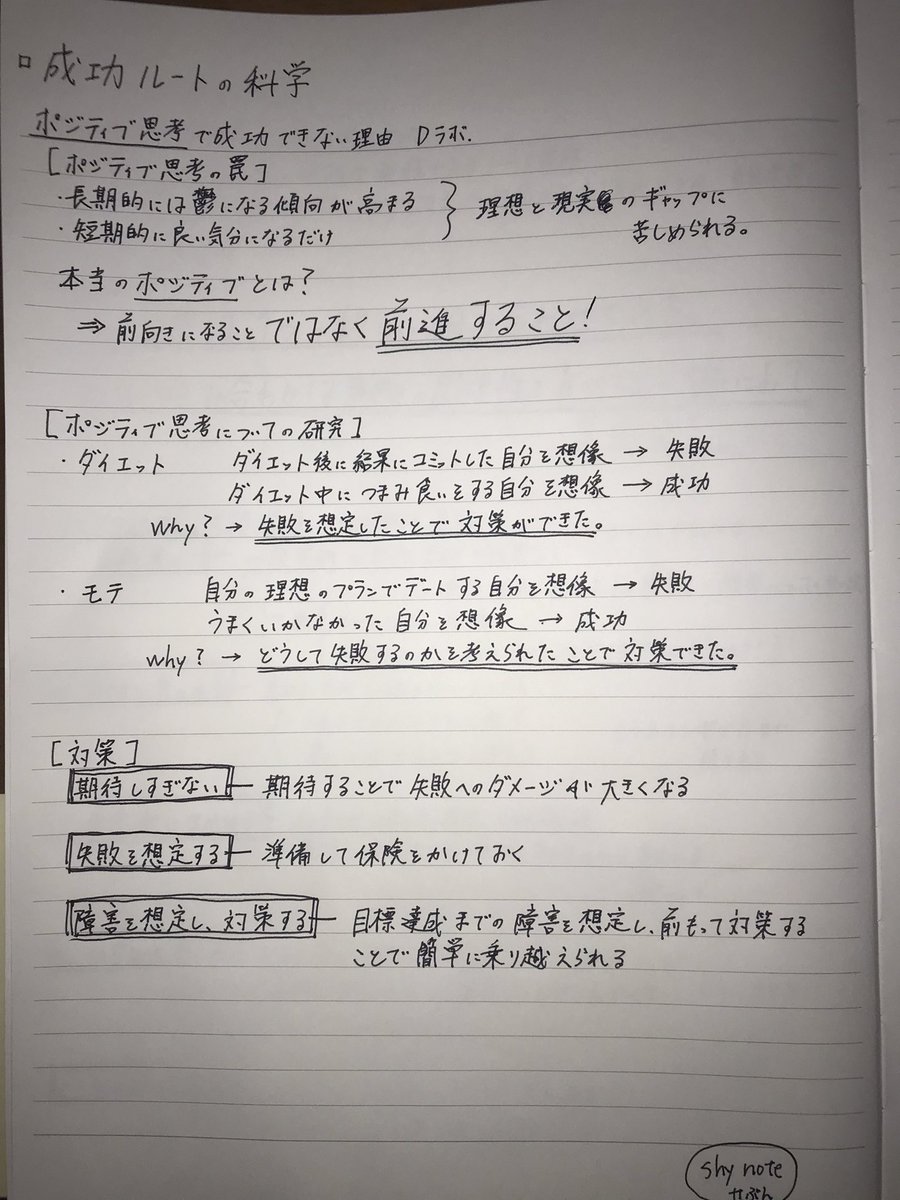 □ 成功ルートの科学
ポジティブ思考で成功できない理由 Dラボ.
[ポジティブ思考の罠]
・長期的には鬱になる傾向が高まる
・短期的に良い気分になるだけ
理想と現実のギャップに
苦しめられる。
本当のポジティブとは?
⇒ 前向きになることではなく前進すること!
[ポジティブ思考についての研究]
・ダイエット ダイエット後に結果にコミットした自分を想像 → 失敗
ダイエット中につまみ食いをする自分を想像 → 成功
why? → 失敗を想定したことで対策ができた。
・モテ 自分の理想のプランでデートする自分を想像 → 失敗
うまくいかなかった自分を想像 → 成功
why? → どうして失敗するのかを考えられたことで対策できた。
[対策]
期待しすぎない ― 期待することで失敗へのダメージが大きくなる
失敗を想定する ― 準備して保険をかけておく
障害を想定し、対策する ― 目標達成までの障害を想定し、前もって対策する
ことで簡単に乗り越えられる
shy note
せぶん